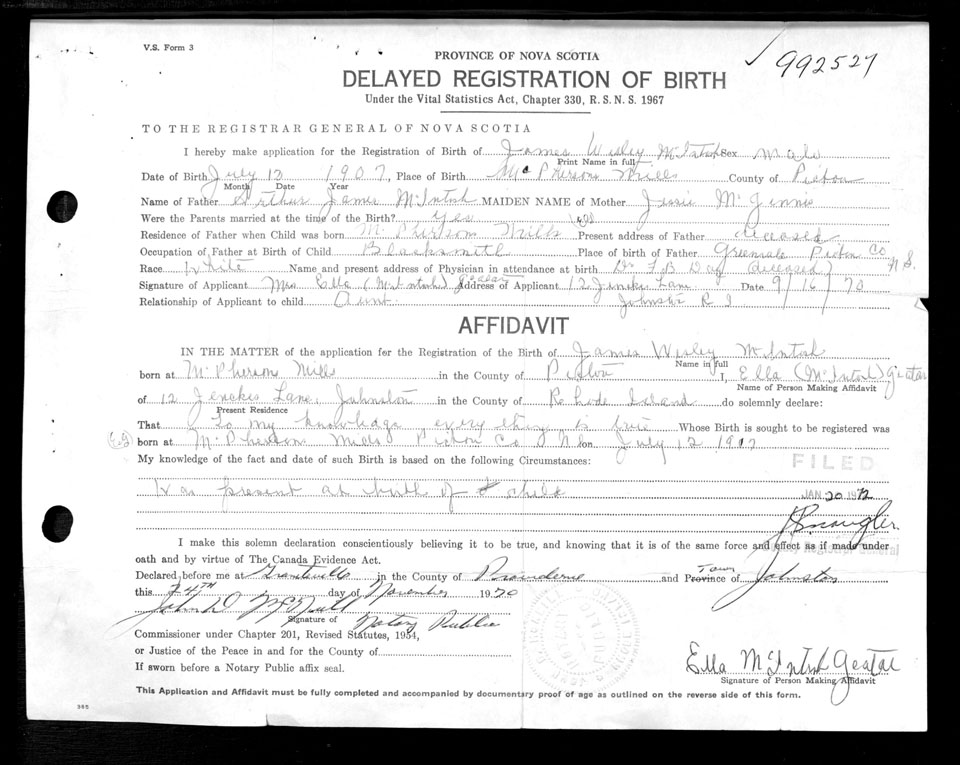 V.S. Form 3
992527
PROVINCE OF NOVA SCOTIA
DELAYED REGISTRATION OF BIRTH
Under the Vital Statistics Act, Chapter 330, R.S.N.S. 1967
TO THE REGISTRAR GENERAL OF NOVA SCOTIA
I hereby make application for the Registration of Birth of James Wisley McIntosh Sex male
Print Name in full
Date of Birth July 12 1907, Place of Birth McPhersons Mills County of Pictou
Month Date Year
Name of Father Arthur James McIntosh MAIDEN NAME of Mother Jessie McGinnis
Were the Parents married at the time of the Birth? yes
Residence of Father when Child was born McPhersons Mills Present address of Father deceased
Occupation of Father at Birth of Child Blacksmith Place of birth of Father Greenvale Pictou Co N.S.
Race White Name and present address of Physician in attendance at birth Dr F B Day (deceased)
Signature of Applicant Mrs Ella (McIntosh) Address of Applicant 12 Jenckes Lane Date 9/16/70
Relationship of Applicant to child Aunt Johnston R I
AFFIDAVIT
IN THE MATTER of the application for the Registration of the Birth of James Wisley McIntosh
Name in full
born at McPhersons Mills in the County of Pictou I, Ella (McIntosh)
Name of Person Making Affidavit
of 12 Jenckes Lane, Johnston in the County of Rhode Island do solemnly declare:
Present Residence
That to my knowledge every thing is true Whose Birth is sought to be registered was
born at McPherson Mills Pictou Co N. on July 12 1907
My knowledge of the fact and date of such Birth is based on the following Circumstances:
FILED
Was present at birth of child
JAN 20 1972
I make this solemn declaration conscientiously believing it to be true, and knowing that it is of the same force and effect as if made under
oath and by virtue of The Canada Evidence Act.
Declared before me at in the County of Providence and Province of Town Johnston
this 24TH day of November 1970
John D McNull
Signature of Notary Public
Commissioner under Chapter 201, Revised Statutes, 1954,
or Justice of the Peace in and for the County of
If sworn before a Notary Public affix seal.
Ella McIntosh
Signature of Person Making Affidavit
This Application and Affidavit must be fully completed and accompanied by documentary proof of age as outlined on the reverse side of this form.